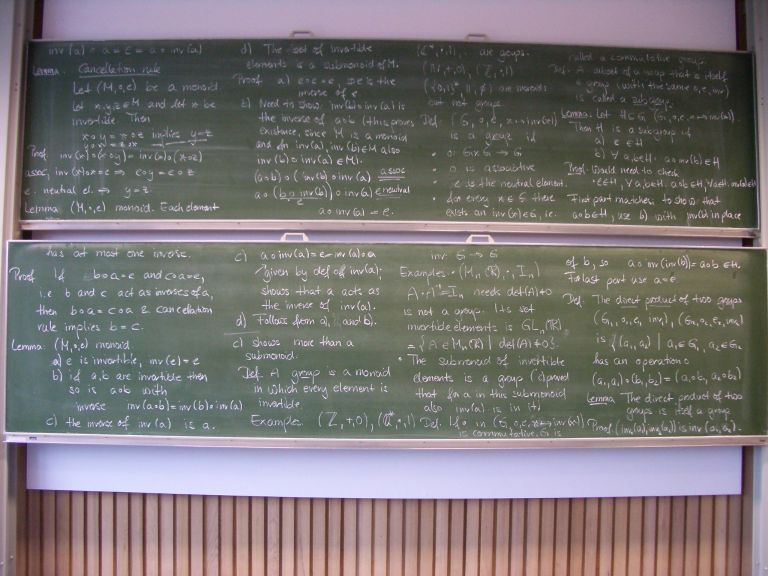 inv(a) ∘ a = e = a ∘ inv(a)
Lemma. Cancellation rule
Let (M,∘,e) be a monoid
Let x,y,z ∈ M and let x be
invertible. Then
x∘y = x∘z implies y=z
Proof. inv(x)∘(x∘y) = inv(x)∘(x∘z)
assoc, inv(x)∘x=e ⇒ e∘y = e∘z
e neutral el. ⇒ y=z.
Lemma (M,∘,e) monoid. Each element
d) The set of invertible
elements is a submonoid of M.
Proof a) e∘e=e, so e is the
inverse of e
b) Need to show inv(b)∘inv(a) is
the inverse of a∘b (this proves
existence, since M is a monoid
and for inv(a), inv(b) ∈ M also
inv(b)∘inv(a) ∈ M).
(a∘b)∘(inv(b)∘inv(a)) assoc
a∘(b∘inv(b))∘inv(a) e neutral
e
a∘inv(a) = e.
are groups.
(N,+,0), (Z,·,1)
are monoids
but not groups.
Def. (G,∘,e,x↦inv(x))
is a group if
· ∘: G×G → G
· ∘ is associative
· e is the neutral element.
· for every x ∈ G there
exists an inv(x) ∈ G, i.e.
called a commutative group.
Def. A subset of a group that is itself
a group (with the same ∘, e, inv)
is called a subgroup.
Lemma: Let H⊆G (G,∘,e,↦inv(a)).
Then H is a subgroup if
a) e ∈ H
b) ∀ a,b∈H: a∘inv(b) ∈ H
Proof. Would need to check
· e∈H, ∀ a,b∈H. a∘b∈H, ∀a∈H. inv(a)∈H
First part matches, to show that
a∘b∈H, use b) with inv(b) in place
has at most one inverse.
Proof If b∘a=e and c∘a=e,
i.e. b and c act as inverses of a,
then b∘a = c∘a & cancellation
rule implies b = c.
Lemma: (M,∘,e) monoid
a) e is invertible, inv(e) = e
b) if a,b are invertible then
so is a∘b with
inverse inv(a∘b) = inv(b)∘inv(a)
c) the inverse of inv(a) is a.
c) a∘inv(a) = e = inv(a)∘a
given by def of inv(a);
shows that a acts as
the inverse of inv(a).
d) Follows from a), and b).
c) shows more than a
submonoid.
Def. A group is a monoid
in which every element is
invertible.
Examples. (Z,+,0), (C*,·,1)
inv: G → G
Examples · (Mn(R),·,In)
A·A⁻¹=In needs det(A)≠0
is not a group. Its set
invertible elements is GLn(R)
= {A∈Mn(R) | det(A)≠0}.
· The submonoid of invertible
elements is a group (c) proved
that for a in this submonoid
also inv(a) is in it)
Def. If ∘ in (G,∘,e,x↦inv(x))
is commutative, G is
of b, so a∘inv(inv(b)) = a∘b ∈ H.
For last part use a=e
Def. The direct product of two groups
(G1,∘1,e1,inv1), (G2,∘2,e2,inv2)
is {(a1,a2) | a1∈G1, a2∈G2}
has an operation ∘
(a1,a2)∘(b1,b2) = (a1∘b1, a2∘b2)
Lemma The direct product of two
groups is itself a group
Proof. (inv1(a1),inv2(a2)) is inv(a1,a2).